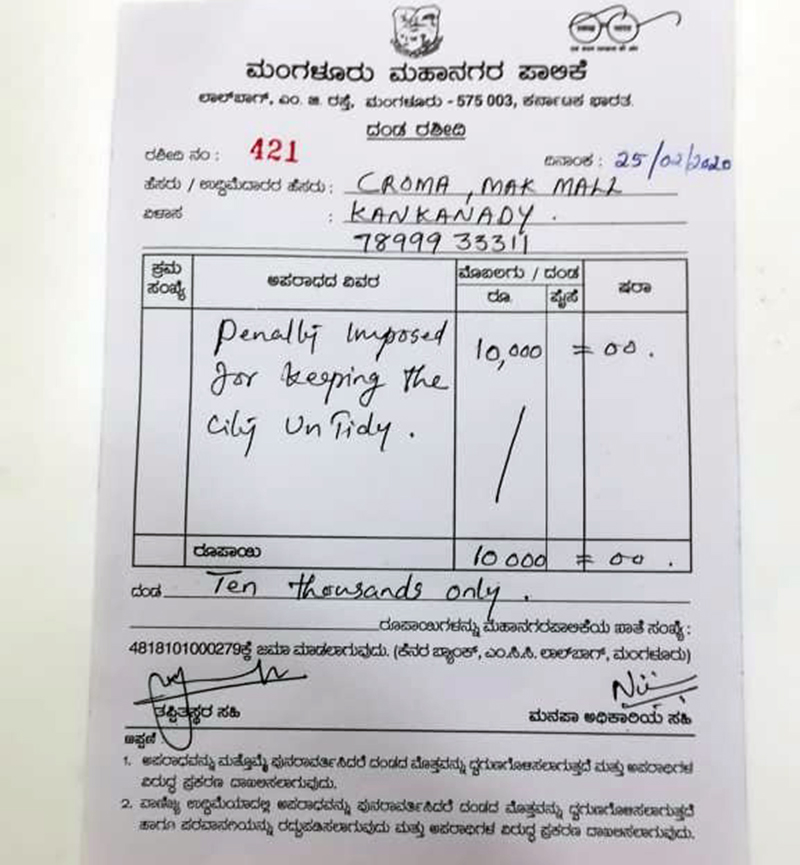 ಮಂಗಳೂರು ಮಹಾನಗರ ಪಾಲಿಕೆ
ಲಾಲ್‌ಬಾಗ್, ಎಂ. ಜಿ. ರಸ್ತೆ, ಮಂಗಳೂರು - 575 003, ಕರ್ನಾಟಕ ಭಾರತ.
ದಂಡ ರಶೀದಿ
ರಶೀದಿ ನಂ : 421 ದಿನಾಂಕ : 25/02/2020
ಹೆಸರು / ಉದ್ದಿಮೆದಾರರ ಹೆಸರು : CROMA, MAK MALL
ವಿಳಾಸ : KANKANADY.
78999 33311
ಕ್ರಮ ಸಂಖ್ಯೆ ಅಪರಾಧದ ವಿವರ ಮೊಬಲಗು / ದಂಡ ಷರಾ
ರೂ. ಪೈಸೆ
Penalty Imposed 10,000 = 00.
for keeping the
City UnTidy.
ರೂಪಾಯಿ 10 000 = 00.
ದಂಡ Ten thousands only.
ರೂಪಾಯಿಗಳನ್ನು ಮಹಾನಗರಪಾಲಿಕೆಯ ಖಾತೆ ಸಂಖ್ಯೆ :
4818101000279ಕ್ಕೆ ಜಮಾ ಮಾಡಲಾಗುವುದು. (ಕೆನರ ಬ್ಯಾಂಕ್, ಎಂ.ಸಿ.ಸಿ. ಲಾಲ್‌ಬಾಗ್, ಮಂಗಳೂರು)
ತಪ್ಪಿತಸ್ಥರ ಸಹಿ ಮನಪಾ ಅಧಿಕಾರಿಯ ಸಹಿ
1. ಅಪರಾಧವನ್ನು ಮತ್ತೊಮ್ಮೆ ಪುನರಾವರ್ತಿಸಿದರೆ ದಂಡದ ಮೊತ್ತವನ್ನು ದ್ವಿಗುಣಗೊಳಿಸಲಾಗುತ್ತದೆ ಮತ್ತು ಅಪರಾಧಿಗಳ
ವಿರುದ್ಧ ಪ್ರಕರಣ ದಾಖಲಿಸಲಾಗುವುದು.
2. ವಾಣಿಜ್ಯ ಉದ್ದಿಮೆಯಾದಲ್ಲಿ ಅಪರಾಧವನ್ನು ಪುನರಾವರ್ತಿಸಿದರೆ ದಂಡದ ಮೊತ್ತವನ್ನು ದ್ವಿಗುಣಗೊಳಿಸಲಾಗುತ್ತದೆ
ಹಾಗೂ ಪರವಾನಗಿಯನ್ನು ರದ್ದುಪಡಿಸಲಾಗುವುದು ಮತ್ತು ಅಪರಾಧಿಗಳ ವಿರುದ್ಧ ಪ್ರಕರಣ ದಾಖಲಿಸಲಾಗುವುದು.